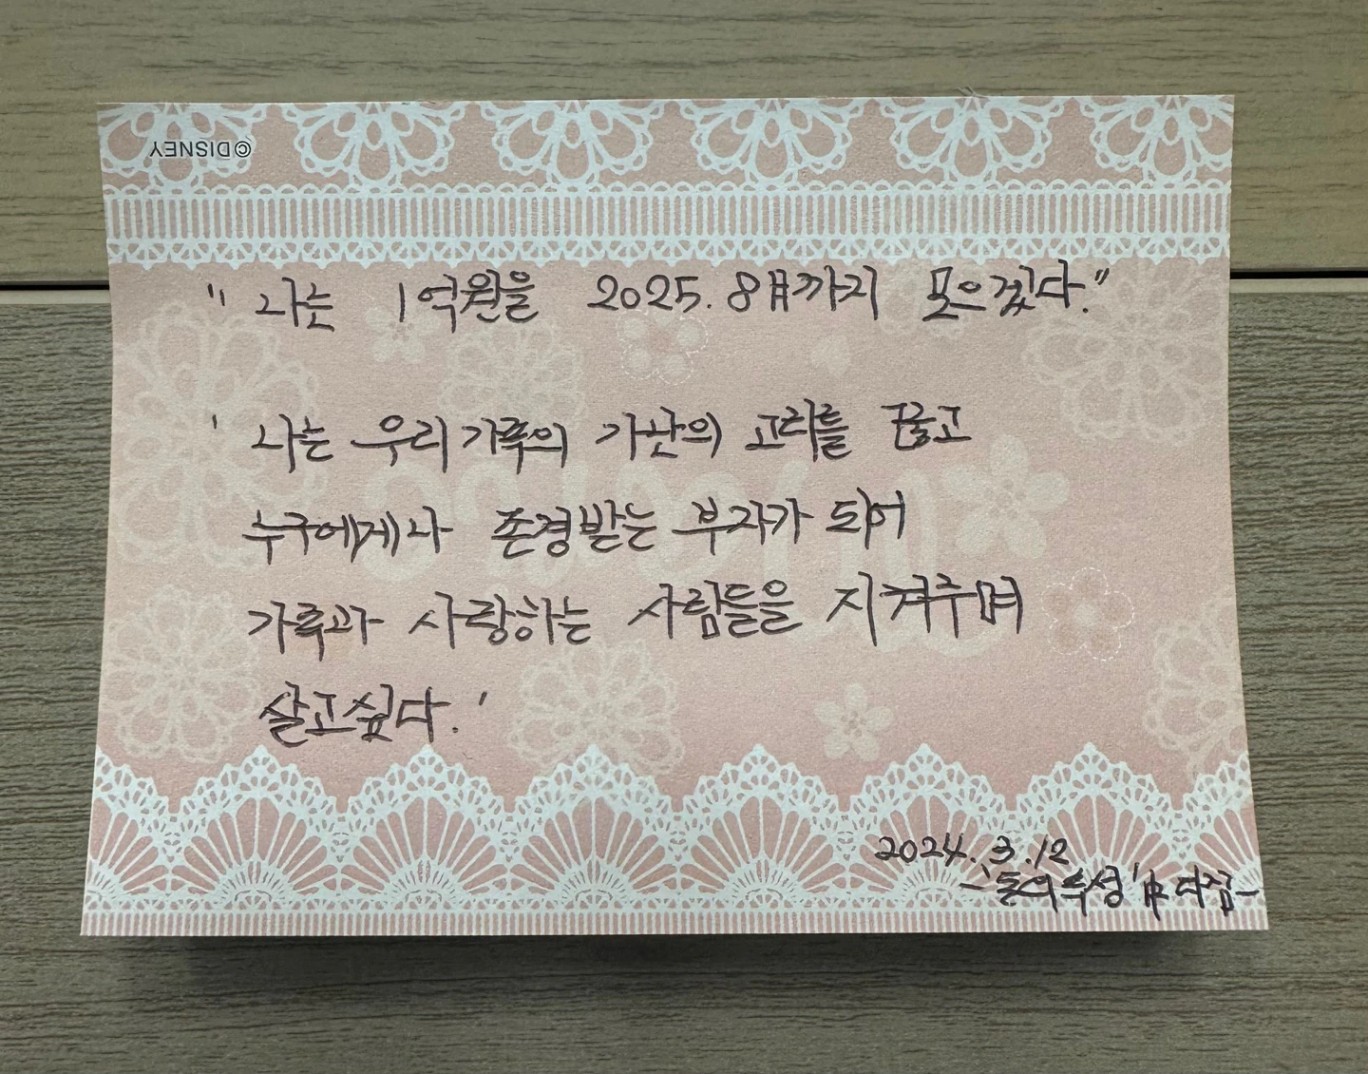 ©DISNEY
" 나는 1억원을 2025. 8月까지 모으겠다."
' 나는 우리 가족의 가난의 고리를 끊고
누구에게나 존경받는 부자가 되어
가족과 사랑하는 사람들을 지켜주며
살고싶다.'
2024. 3. 12
-'돈의속성' 中 다짐-